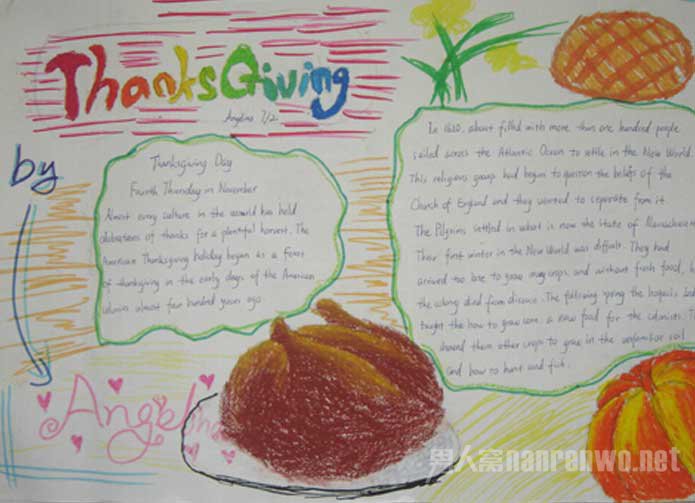 ThanksGiving
Angelina 7/2
by
Thanksgiving Day
Fourth Thursday in November
Almost every culture in the world has held
celebrations of thanks for a plentiful harvest. The
American Thanksgiving holiday began as a feast
of thanksgiving in the early days of the American
almost four hundred years ago
In 1620, about filled with more than one hundred people
sailed across the Atlantic Ocean to settle in the New World.
This religious group had begun to question the beliefs of the
Church of England and they wanted to separate from it.
The Pilgrims settled in what is now the State of
Their first winter in the New World was difficult. They had
arrived too late to grow many crops, and without fresh food,
the died from disease. The following spring the
taught the how to grow corn, a new food for the colonists.
them other crops to grow in the unfamiliar soil
and how to hunt and fish.
Angelina
男人窝nanrenwo.net